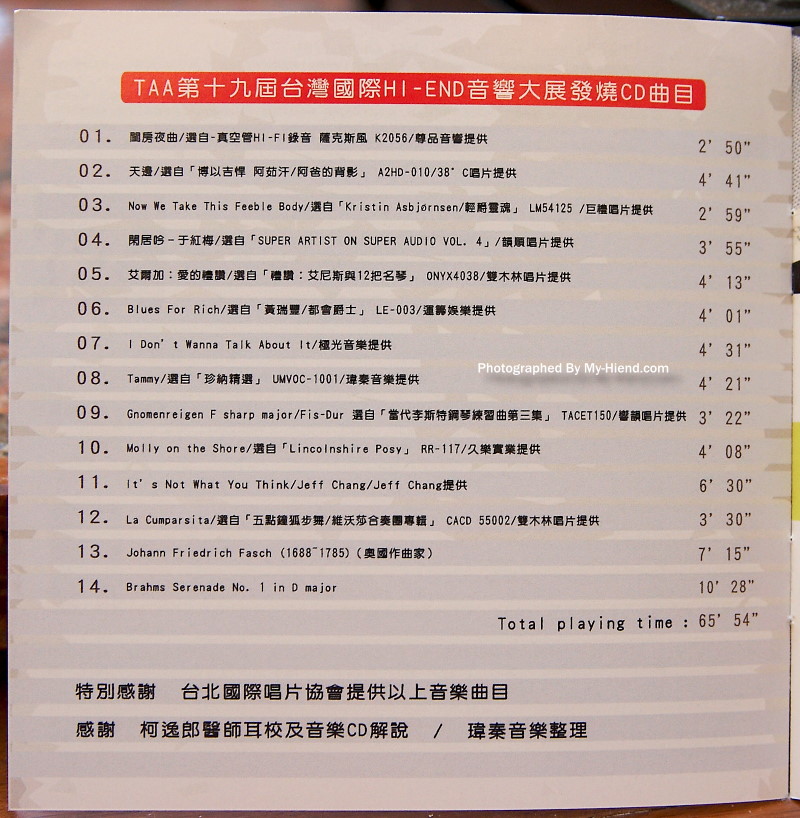 TAA第十九屆台灣國際HI-END音響大展發燒CD曲目
01. 閨房夜曲/選自-真空管HI-FI錄音 薩克斯風 K2056/尊品音響提供 2' 50"
02. 天邊/選自「博以吉悍 阿茹汗/阿爸的背影」 A2HD-010/38°C唱片提供 4' 41"
03. Now We Take This Feeble Body/選自「Kristin Asbjørnsen/輕爵靈魂」 LM54125 /巨禮唱片提供 2' 59"
04. 閑居吟-于紅梅/選自「SUPER ARTIST ON SUPER AUDIO VOL. 4」/韻順唱片提供 3' 55"
05. 艾爾加：愛的禮讚/選自「禮讚：艾尼斯與12把名琴」 ONYX4038/雙木林唱片提供 4' 13"
06. Blues For Rich/選自「黃瑞豐/都會爵士」 LE-003/運籌娛樂提供 4' 01"
07. I Don't Wanna Talk About It/極光音樂提供 4' 31"
Photographed By My-Hiend.com
08. Tammy/選自「珍納精選」 UMVOC-1001/瑋秦音樂提供 4' 21"
09. Gnomenreigen F sharp major/Fis-Dur 選自「當代李斯特鋼琴練習曲第三集」 TACET150/響韻唱片提供 3' 22"
10. Molly on the Shore/選自「Lincolnshire Posy」 RR-117/久樂實業提供 4' 08"
11. It's Not What You Think/Jeff Chang/Jeff Chang提供 6' 30"
12. La Cumparsita/選自「五點鐘狐步舞/維沃莎合奏團專輯」 CACD 55002/雙木林唱片提供 3' 30"
13. Johann Friedrich Fasch (1688~1785)（奧國作曲家） 7' 15"
14. Brahms Serenade No. 1 in D major 10' 28"
Total playing time : 65' 54"
特別感謝 台北國際唱片協會提供以上音樂曲目
感謝 柯逸郎醫師耳校及音樂CD解說 / 瑋秦音樂整理